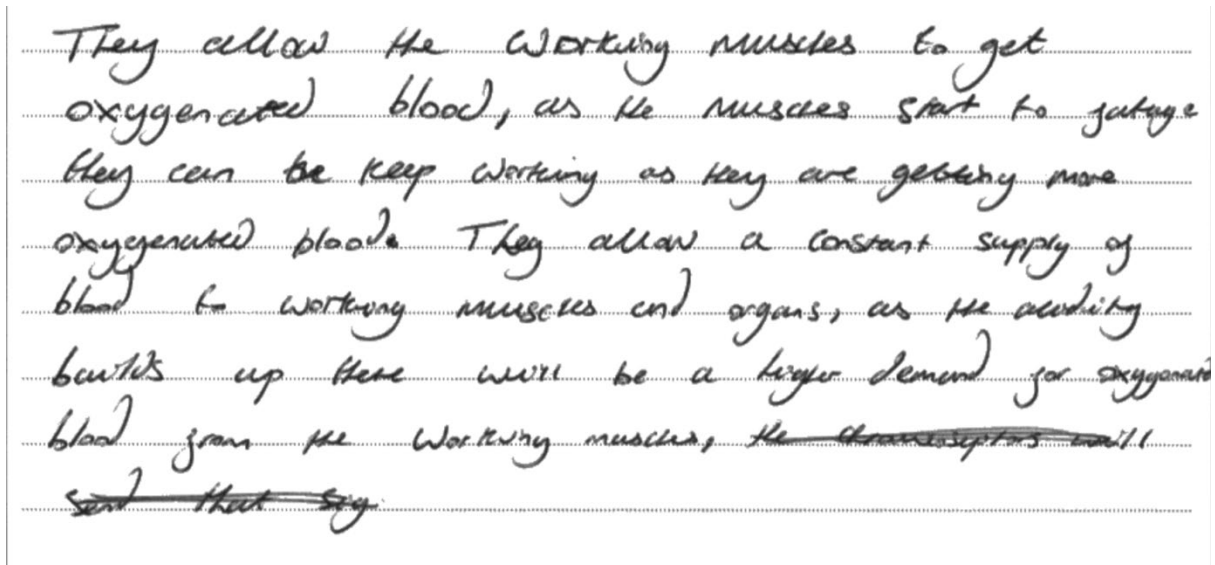 They allow the working muscles to get
oxygenated blood, as the muscles start to fatuge
they can be keep working as they are getting more
oxygenated blood. They allow a constant supply of
blood to working muscles and organs, as the acidity
builds up there will be a higher demand for oxygenated
blood from the working muscles, the chemoreceptors will
send that sig